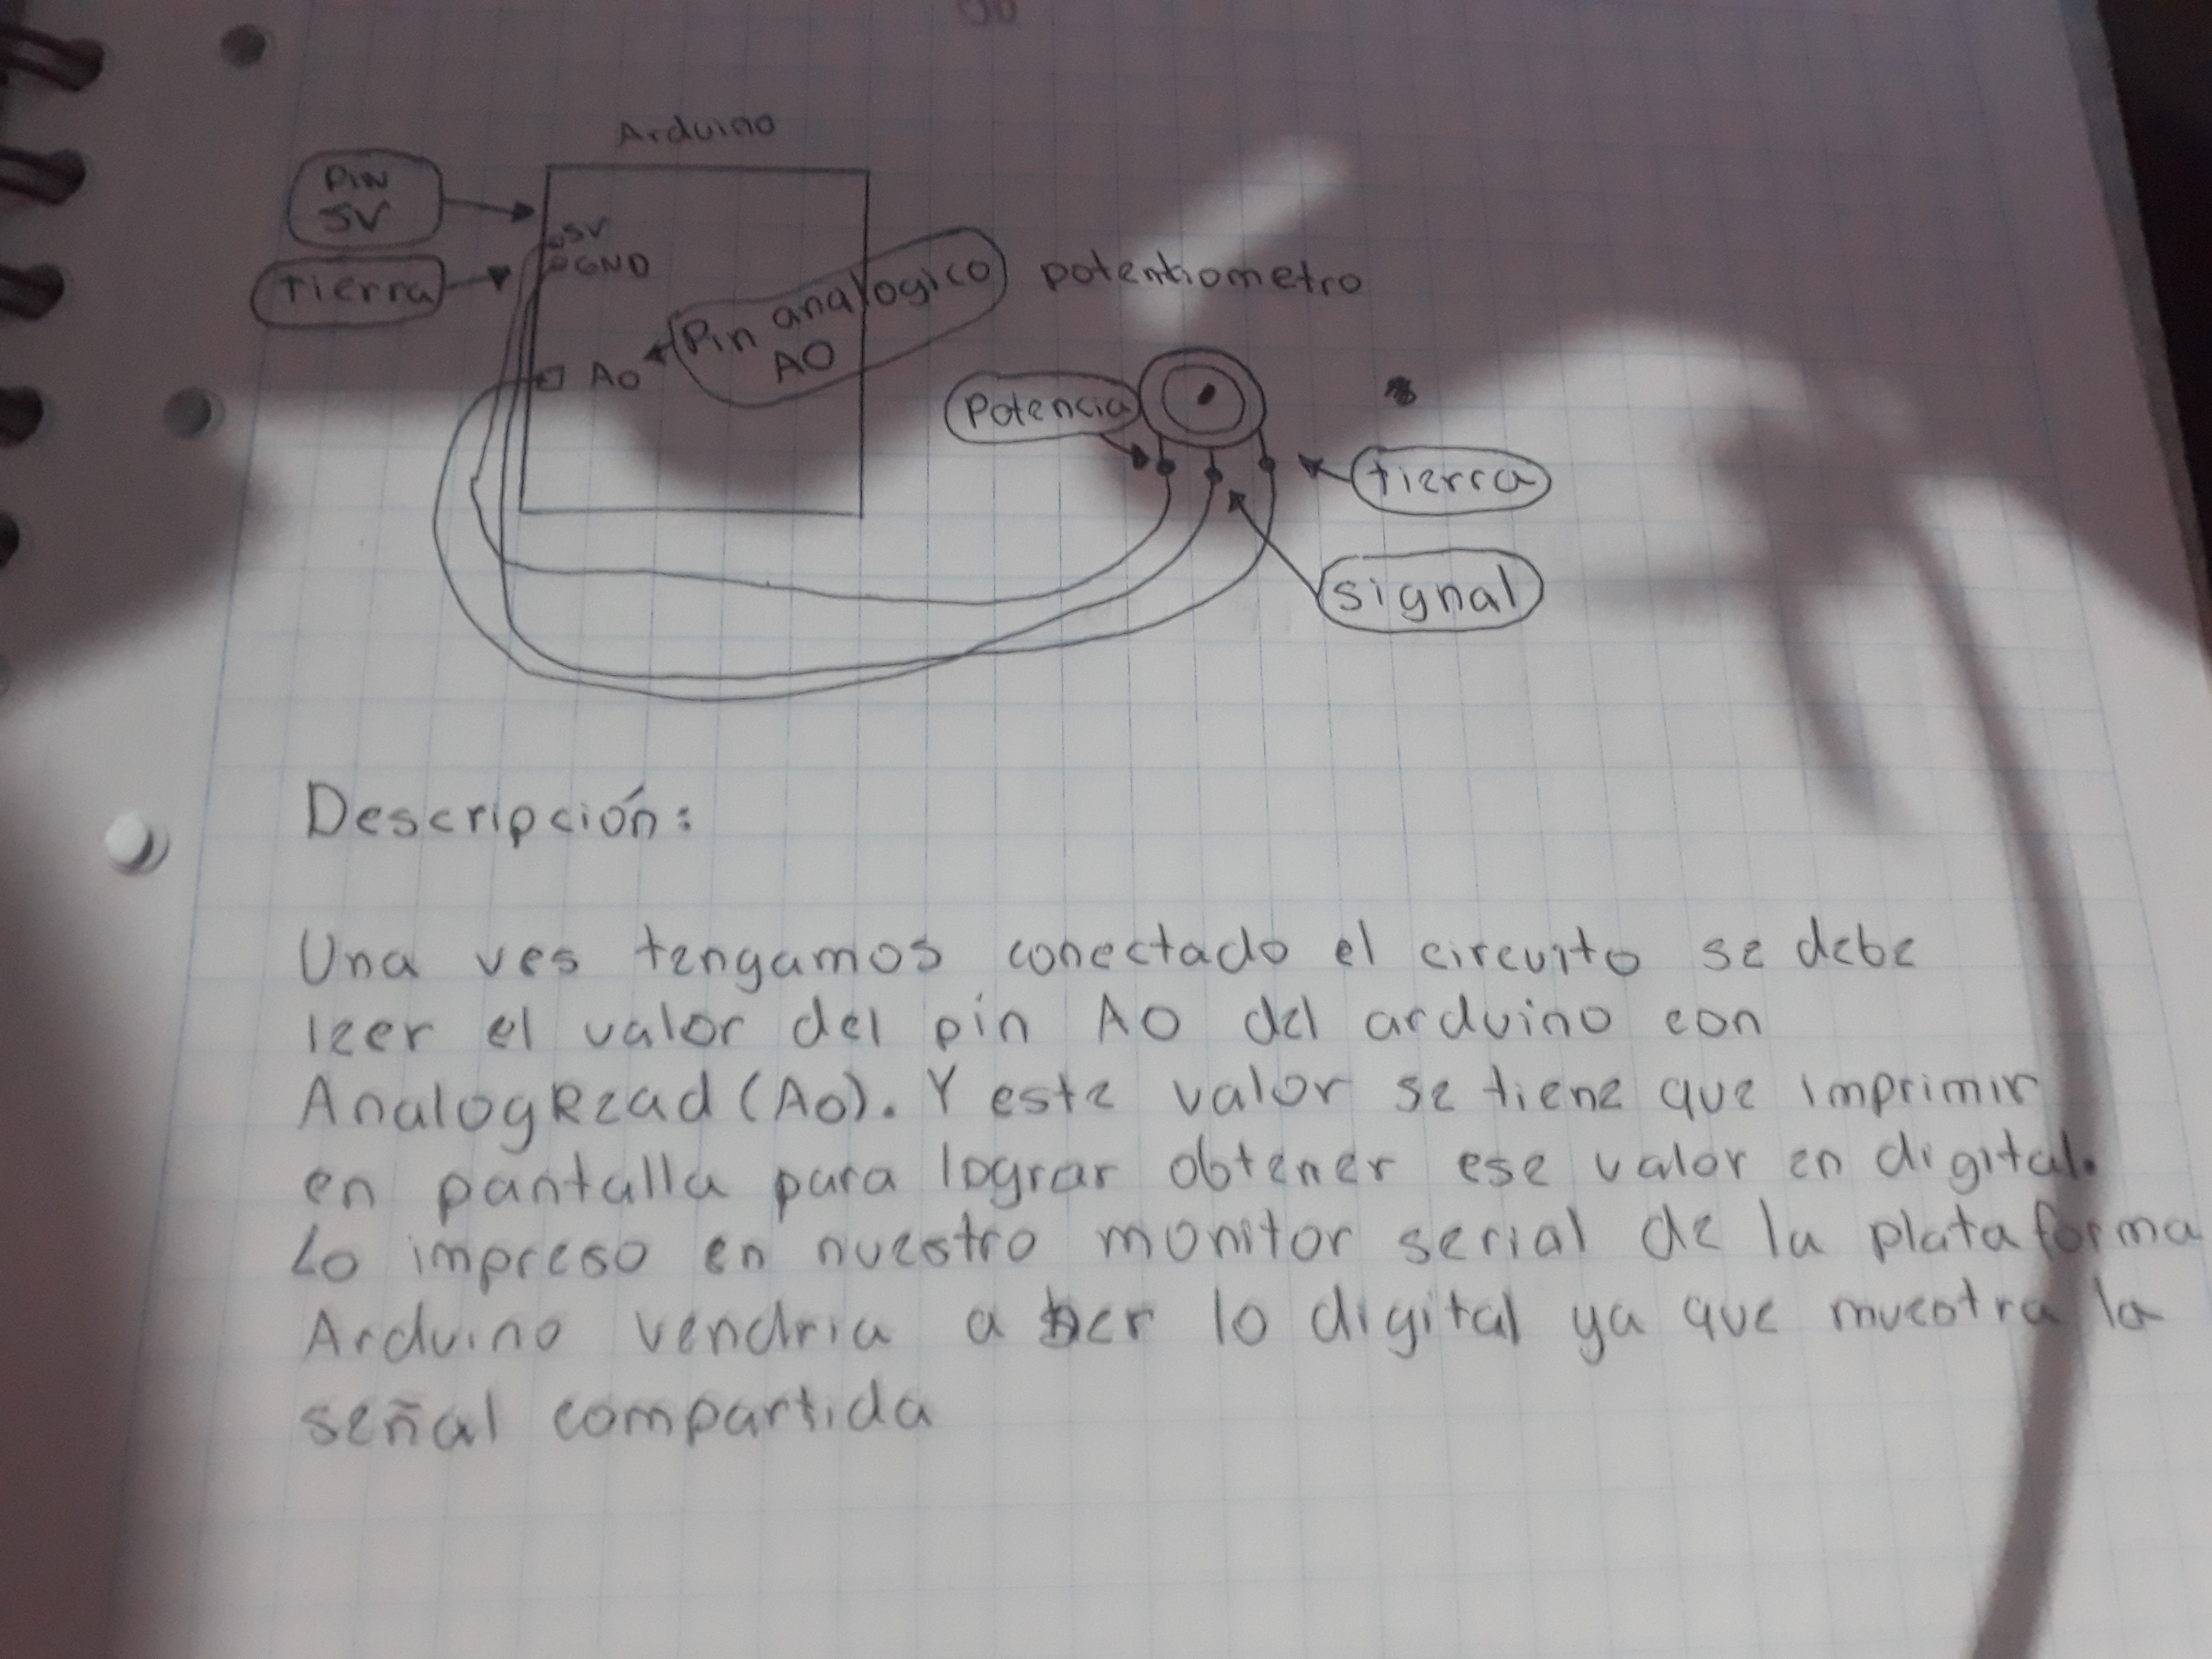 Arduino
PIN
5V
5V
GND
tierra
Pin analogico
A0
A0
potentiometro
Potencia
tierra
signal
Descripción:
Una ves tengamos conectado el circuito se debe
leer el valor del pin A0 del arduino con
AnalogRead (A0). Y este valor se tiene que imprimir
en pantalla para lograr obtener ese valor en digital.
Lo impreso en nuestro monitor serial de la plataforma
Arduino vendria a ser lo digital ya que muestra la
señal compartida